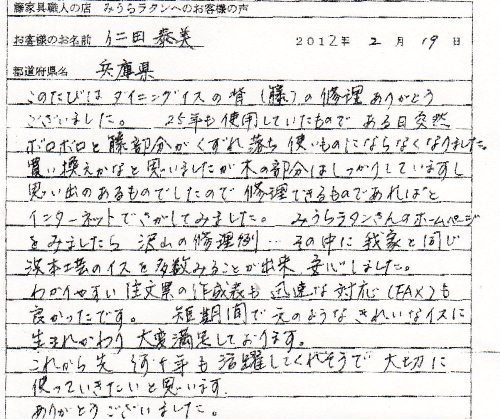 藤家具職人の店 みうらラタンへのお客様の声
お客様のお名前 仁田 恭美 2012年 2月 19日
都道府県名 兵庫県
このたびは ダイニングイスの背（籐）の修理ありがとう
ございました。 25年も使用していたもので ある日突然
ボロボロと籐部分がくずれ落ち使いものにならなくなりました。
買い換えかなと思いましたが木の部分はしっかりしていますし
思い出のあるものでしたので 修理できるものであればと
インターネットでさがしてみました。 みうらラタンさんのホームページ
をみましたら 沢山の修理例… その中に我家と同じ
浜本工芸のイスを多数みることが出来 安心しました。
わかりやすい注文票の作成表も 迅速な対応（FAX）も
良かったです。 短期間で元のようなきれいなイスに
生まれかわり大変満足しております。
これから先 何十年も活躍してくれそうで 大切に
使っていきたいと思います。
ありがとうございました。